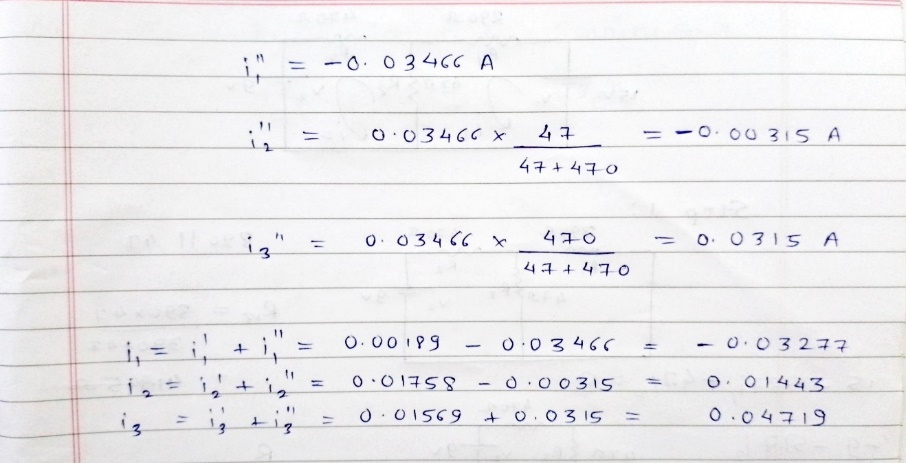 i₁'' = -0.03466 A
i₂'' = 0.03466 × 47 / 47+470 = -0.00315 A
i₃'' = 0.03466 × 470 / 47+470 = 0.0315 A
i₁ = i₁' + i₁'' = 0.00189 - 0.03466 = -0.03277
i₂ = i₂' + i₂'' = 0.01758 - 0.00315 = 0.01443
i₃ = i₃' + i₃'' = 0.01569 + 0.0315 = 0.04719